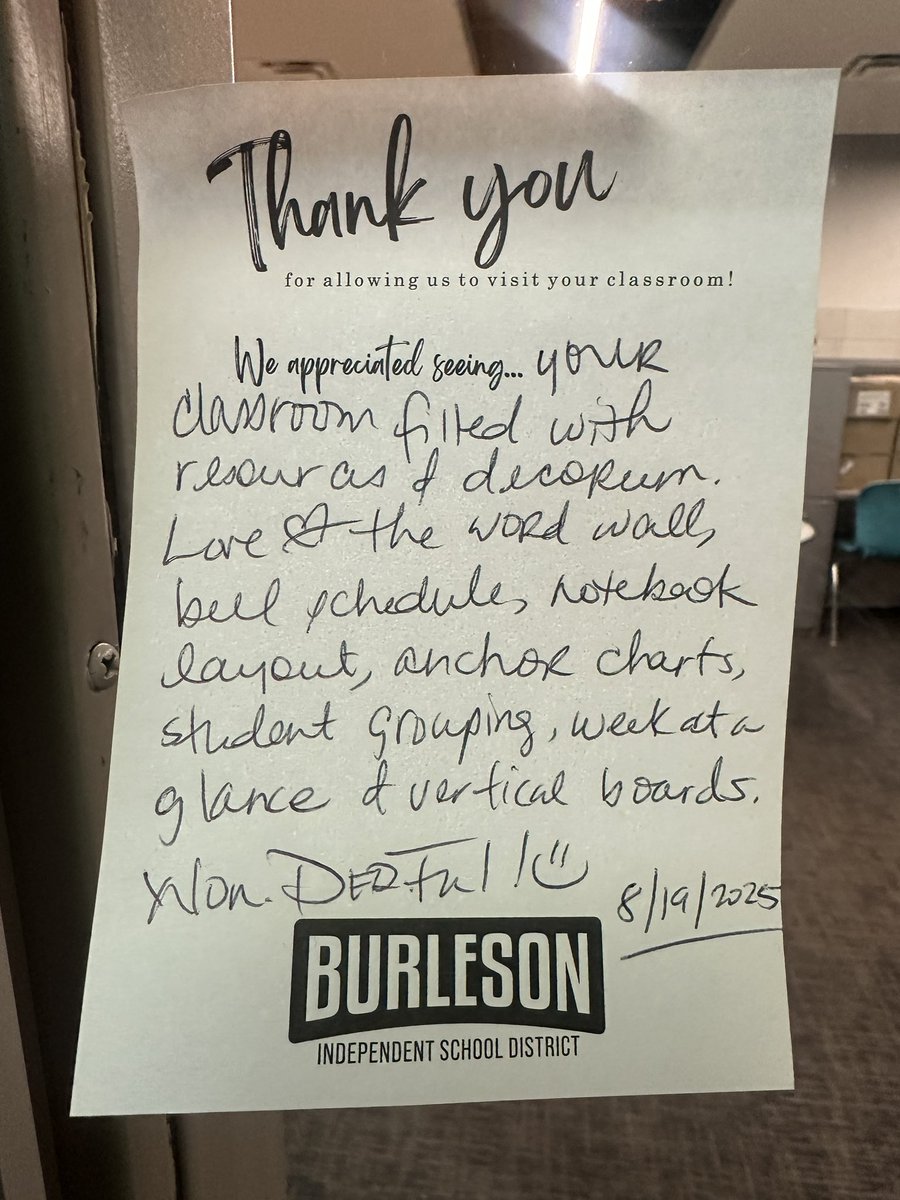 Thank you
for allowing us to visit your classroom!
We appreciated seeing... your
classroom filled with
resources & decorum.
Love the word wall,
bell schedule, notebook
layout, anchor charts,
student grouping, week at a
glance & vertical boards.
Won.DERFul!
8/19/2025
BURLESON
INDEPENDENT SCHOOL DISTRICT